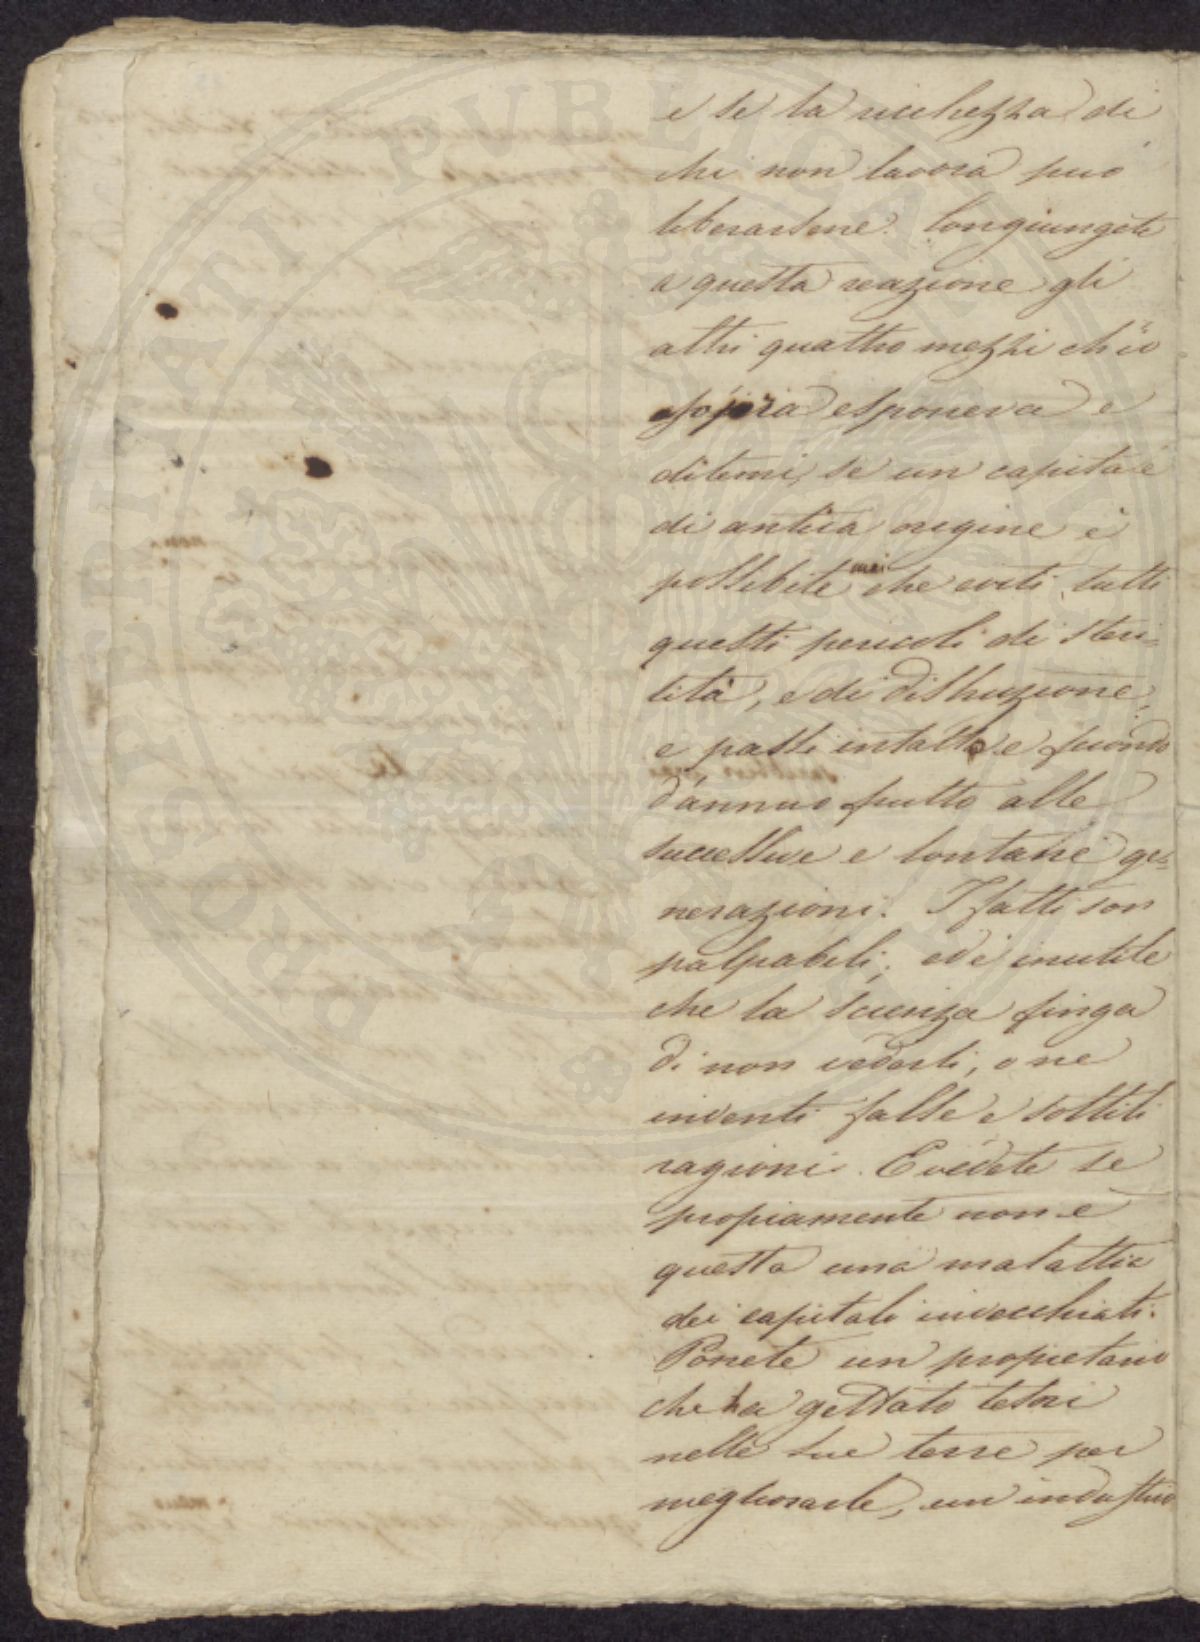 e se la ricchezza di
chi non lavora può
liberarsene. Congiungete
a questa reazione gli
altri quattro mezzi ch'io
sopra esponeva e
ditemi, se un capitale
di antica origine è
possibile mai che eviti tutti
questi pericoli di steri-
lità, e di distruzione,
e passi intatto e fecondo
d'annuo frutto alle
successive e lontane ge-
nerazioni. I fatti son
palpabili; ed è inutile
che la scienza finga
di non vederli, o ne
inventi false e sottili
ragioni. E vedete se
propiamente non è
questa una malattia
dei capitali invecchiati.
Ponete un propietario
che ha gettato tesori
nelle sue terre per
megliorarle, un industrio
PROSPERITATI PVBLICAE